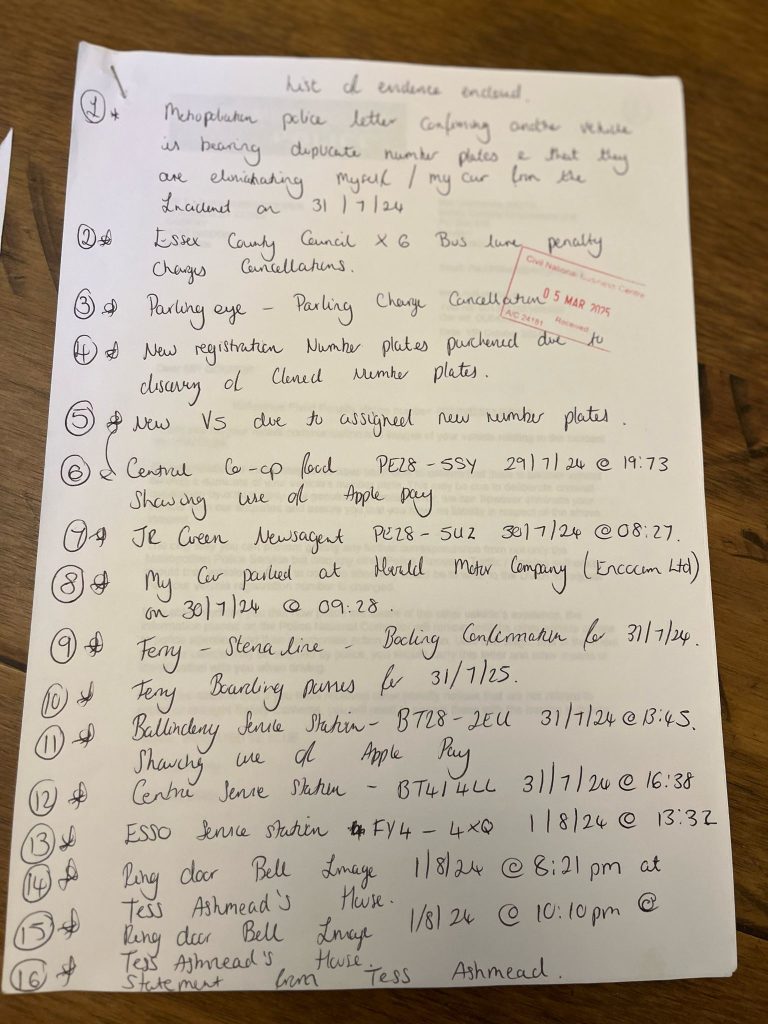 List of evidence enclosed.
1 * Metropolitan police letter confirming another vehicle
is bearing duplicate number plates & that they
are eliminating myself / my car from the
Incident on 31/7/24
2 * Essex County Council x 6 Bus lane penalty
Charges Cancellations.
Civil National Business Centre
05 MAR 2025
A/C 24181 Received
3 * Parking eye - Parking Charge Cancellation
4 * New registration Number plates purchased due to
discovery of Cloned number plates.
5 * New V5 due to assigned new number plates.
6 Central Co-op food PE28-5SY 29/7/24 @ 19:73
Showing use of Apple pay
7 * JR Green Newsagent PE28-5UZ 30/7/24 @ 08:27.
8 * My Car parked at Motor Company (Ltd)
on 30/7/24 @ 09:28.
9 * Ferry - Stena line - Booking Confirmation for 31/7/24.
10 * Ferry Boarding passes for 31/7/25.
11 * Ballinderry Service Station - BT28-2EU 31/7/24 @ 13:45.
Showing use of Apple Pay
12 * Centre Service Station - BT41 4LL 31/7/24 @ 16:38
13 * ESSO Service station FY4-4XQ 1/8/24 @ 13:32
14 * Ring door Bell Image 1/8/24 @ 8:21 pm at
Tess Ashmead's House.
15 * Ring door Bell Image 1/8/24 @ 10:10pm @
Tess Ashmead's House.
16 * Statement from Tess Ashmead.